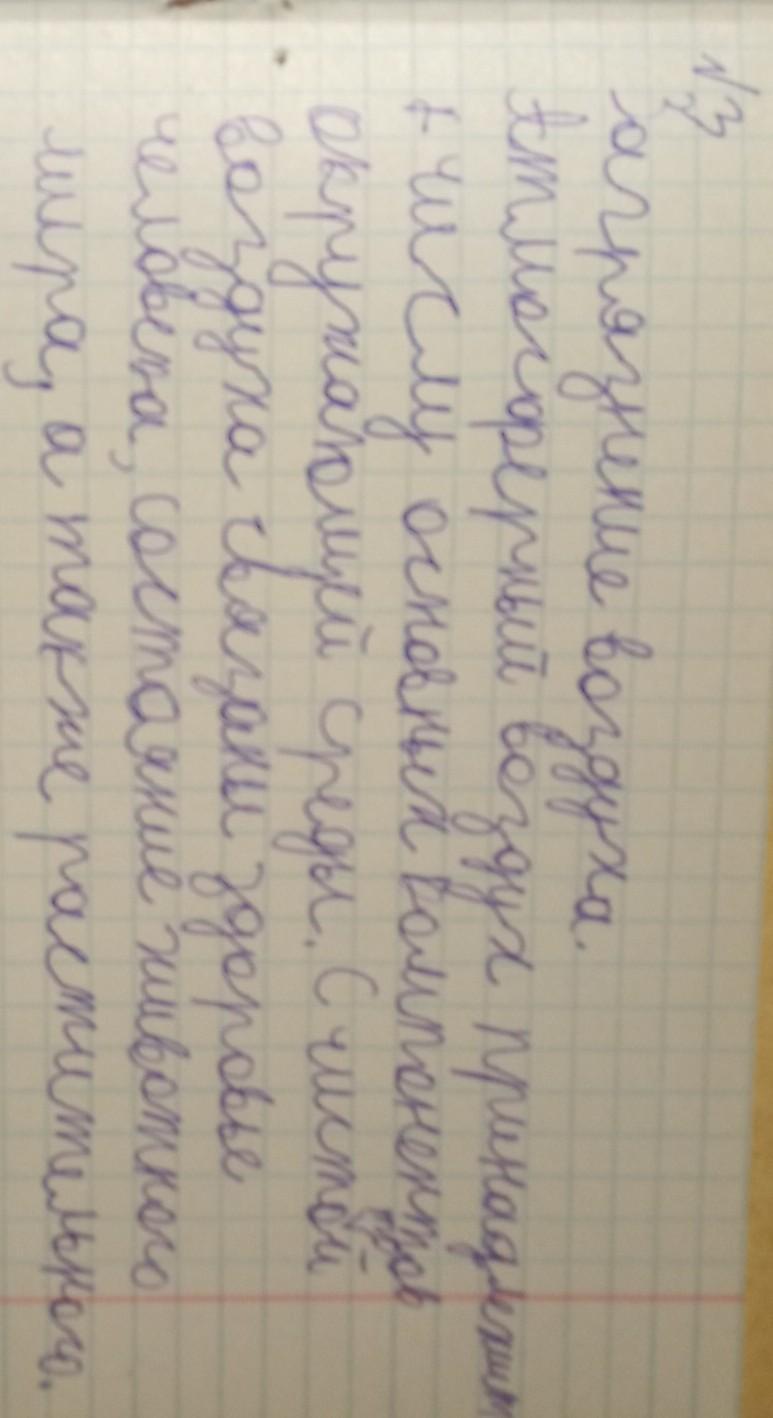 №3
агрязнение воздуха.
Атмосферный воздух принадлежит
к числу основных компенентов
окружающей среды. С чистой
воздуха связаны здоровье
человека, состаяние животного
мира, а также растительного.